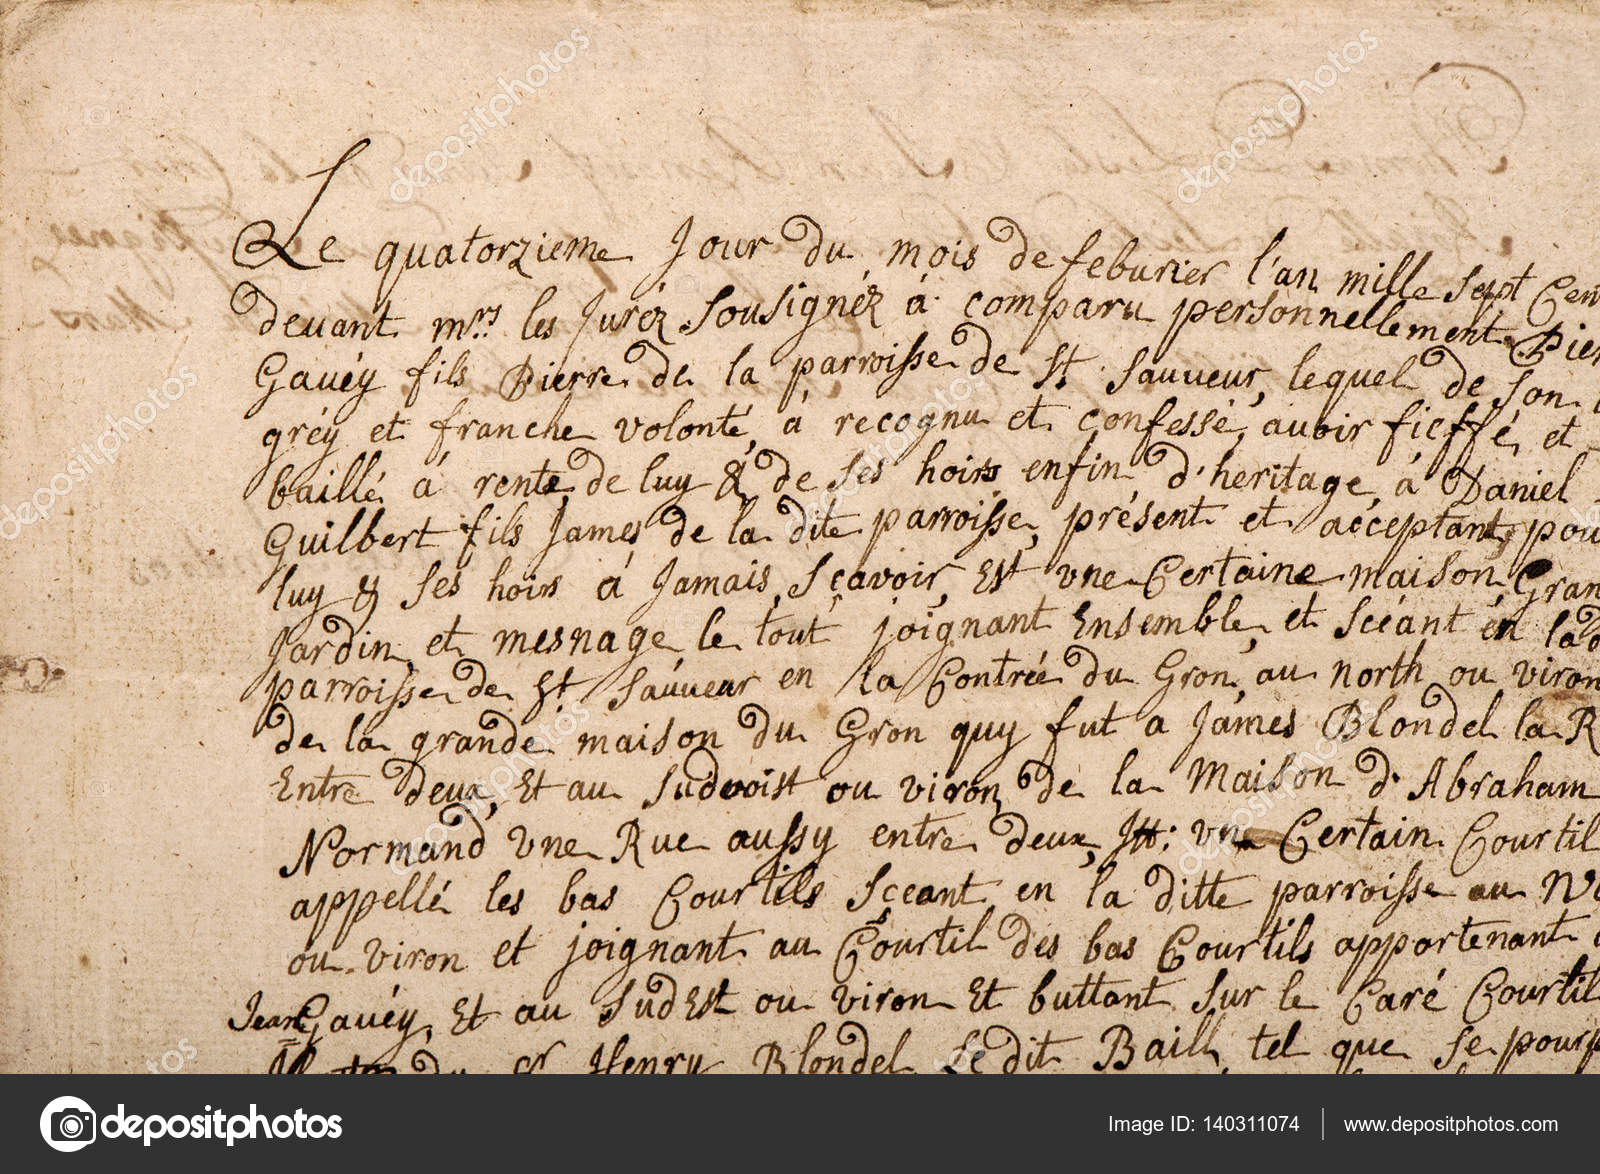 Le quatorzieme Jour du mois de feburier l'an mille sept Cen
deuant mrs les Juréz Sousignéz à comparu personnellement Pier
Gauéy fils Pierre de la parroisse de St Sauueur, lequel de son
gréy et franche volonté, à recognu et confessé, auoir fieffé, et
baillé à rente de luy & de ses hoirs enfin d'heritage, à Daniel
Guilbert fils James de la dite parroisse, présent et acceptant, pou
luy & ses hoirs à Jamais, Sçavoir, Est vne Certaine maison, Gran
Jardin, et mesnage le tout joignant Ensemble, et scéant en lad
parroisse de St Sauueur en la Contrée du Gron, au north ou viron
de la grande maison du Gron quy fut a James Blondel la R
Entre deux, Et au Sudvoist ou viron de la Maison d'Abraham
Normand vne Rue aussy entre deux, Itt: vn Certain Courtil
appellé les bas Courtils Sçeant en la ditte parroisse au No
ou viron et joignant au Courtil des bas Courtils apportenant
Jean Gauéy, Et au SudEst ou viron Et buttant sur le Caré Courtil
du Sr Henry Blondel Ledit Baill tel que se pourp
depositphotos
Image ID: 140311074 www.depositphotos.com